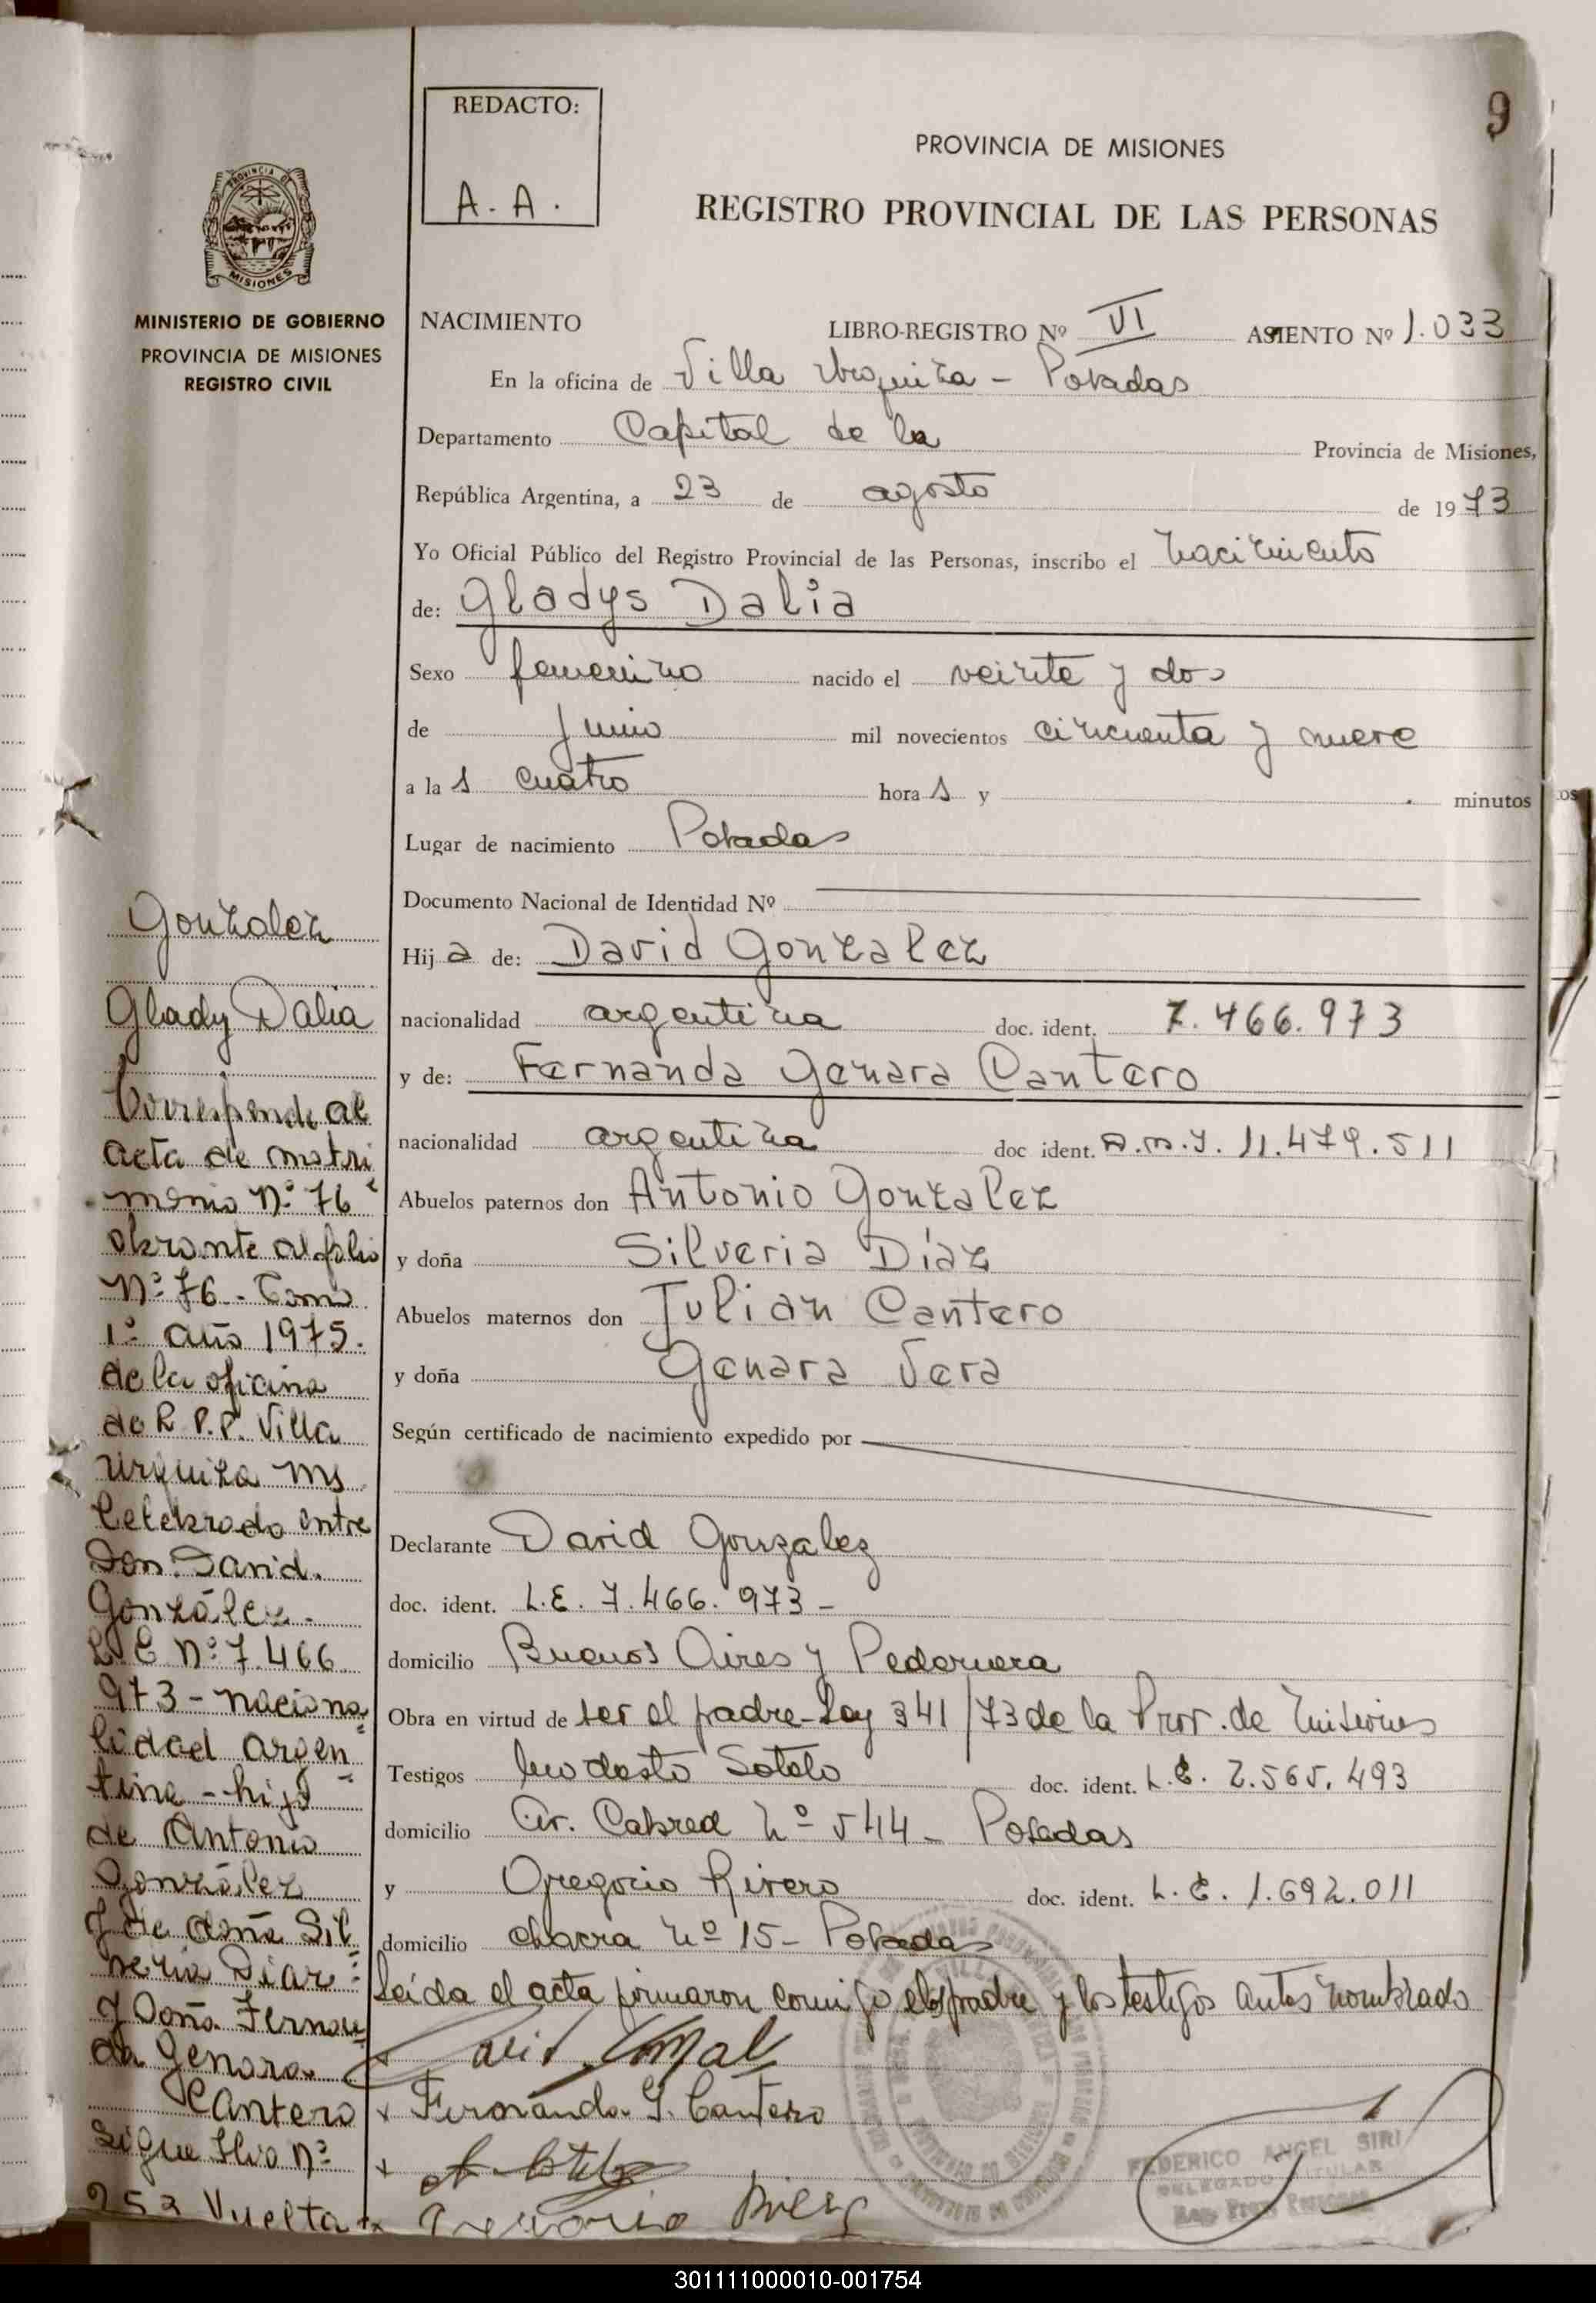 9
REDACTO:
A. A.
PROVINCIA DE MISIONES
REGISTRO PROVINCIAL DE LAS PERSONAS
PROVINCIA DE
MISIONES
MINISTERIO DE GOBIERNO
PROVINCIA DE MISIONES
REGISTRO CIVIL
NACIMIENTO LIBRO-REGISTRO Nº VI ASIENTO Nº 1.033
En la oficina de Villa Urquiza - Posadas
Departamento Capital de la Provincia de Misiones,
República Argentina, a 23 de agosto de 1973
Yo Oficial Público del Registro Provincial de las Personas, inscribo el nacimiento
de: Gladys Dalia
Sexo femenino nacido el veinte y dos
de junio mil novecientos cincuenta y nueve
a la s cuatro hora s y minutos
Lugar de nacimiento Posadas
Documento Nacional de Identidad Nº
Hij a de: David Gonzalez
nacionalidad argentina doc. ident. 7.466.973
y de: Fernanda Genara Cantero
nacionalidad argentina doc ident. 11.479.511
Abuelos paternos don Antonio Gonzalez
y doña Silveria Díaz
Abuelos maternos don Julian Cantero
y doña Genara Vera
Según certificado de nacimiento expedido por
Declarante David Gonzalez
doc. ident. L.E. 7.466.973-
domicilio Buenos Aires y Pedernera
Obra en virtud de ser el padre-Ley 341/73 de la Prov. de Misiones
Testigos Modesto Sotelo doc. ident. L.E. 2.565.493
domicilio Av. Cabred nº 544- Posadas
y Gregorio Rivero doc. ident. L.E. 1.692.011
domicilio chacra nº 15- Posadas
Leída el acta firmaron conmigo el padre y los testigos antes nombrado
Fernanda G. Cantero
FEDERICO ANGEL SIRI
DELEGADO TITULAR
Reg. Prov. Personas
Gonzalez
Glady Dalia
Corresponde al
acta de matri
monio Nº 76
obrante al folio
Nº 76 - Tomo
1º año 1975.
de la oficina
de R. P.P. Villa
Urquiza Ms
Celebrado entre
Don David.
González.
L E Nº 7.466
973 - naciona
lidad argen
tina - hijo
de Antonio
González
y de doña Sil
veria Díaz
y Doña Fernan
da Genara
Cantero
Sigue flio nº
252 Vuelta
301111000010-001754